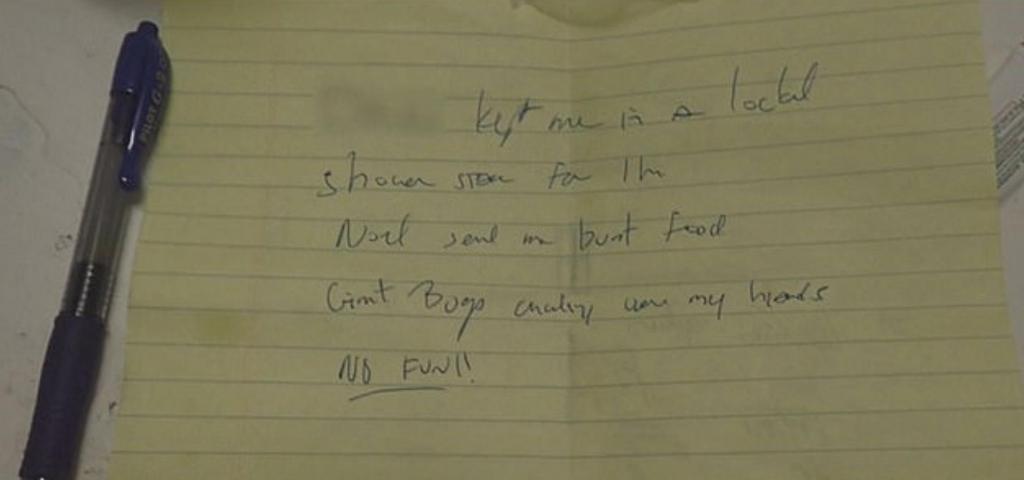 kept me in a locked
shower stall for 1 hr
Noel sent me burnt food
Giant Bugs crawling over my hands
NO FUN!!
PILOT G-2 07